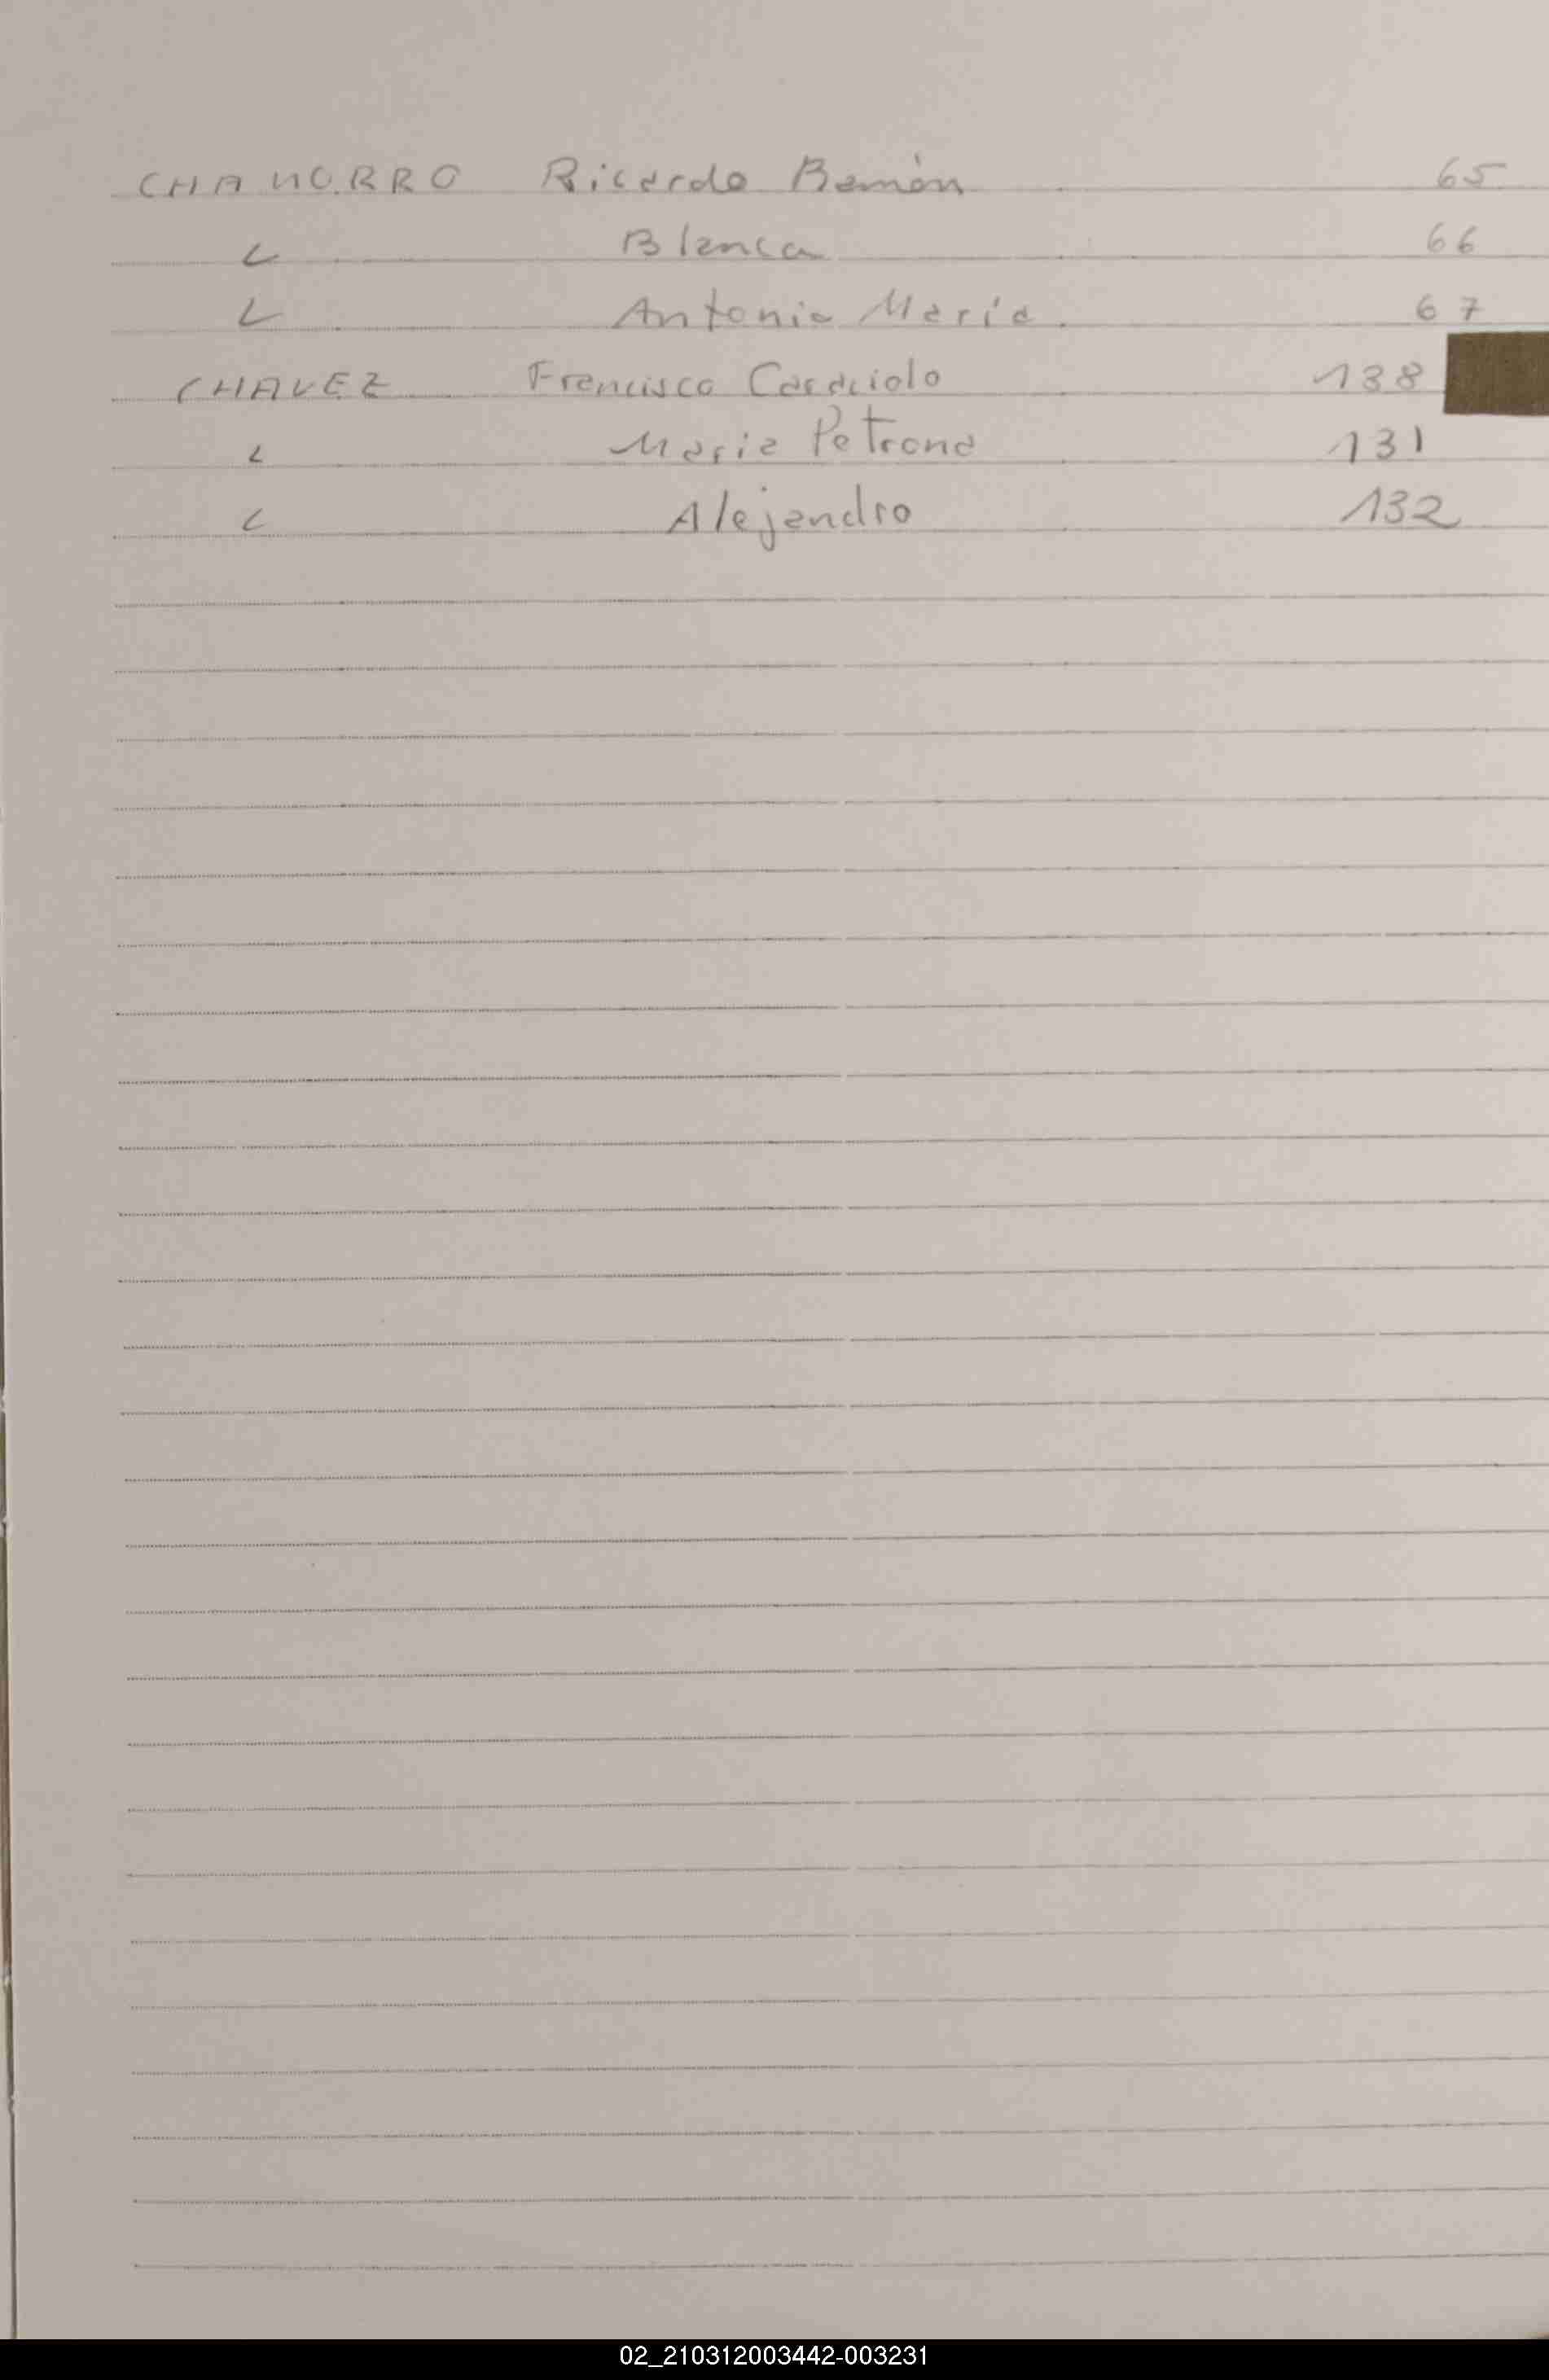 CHAMORRO Ricardo Ramón 65
" Blanca 66
" Antonia María 67
CHAVEZ Francisco Caraciolo 138
" Maria Petrona 131
" Alejandro 132
02_210312003442-003231